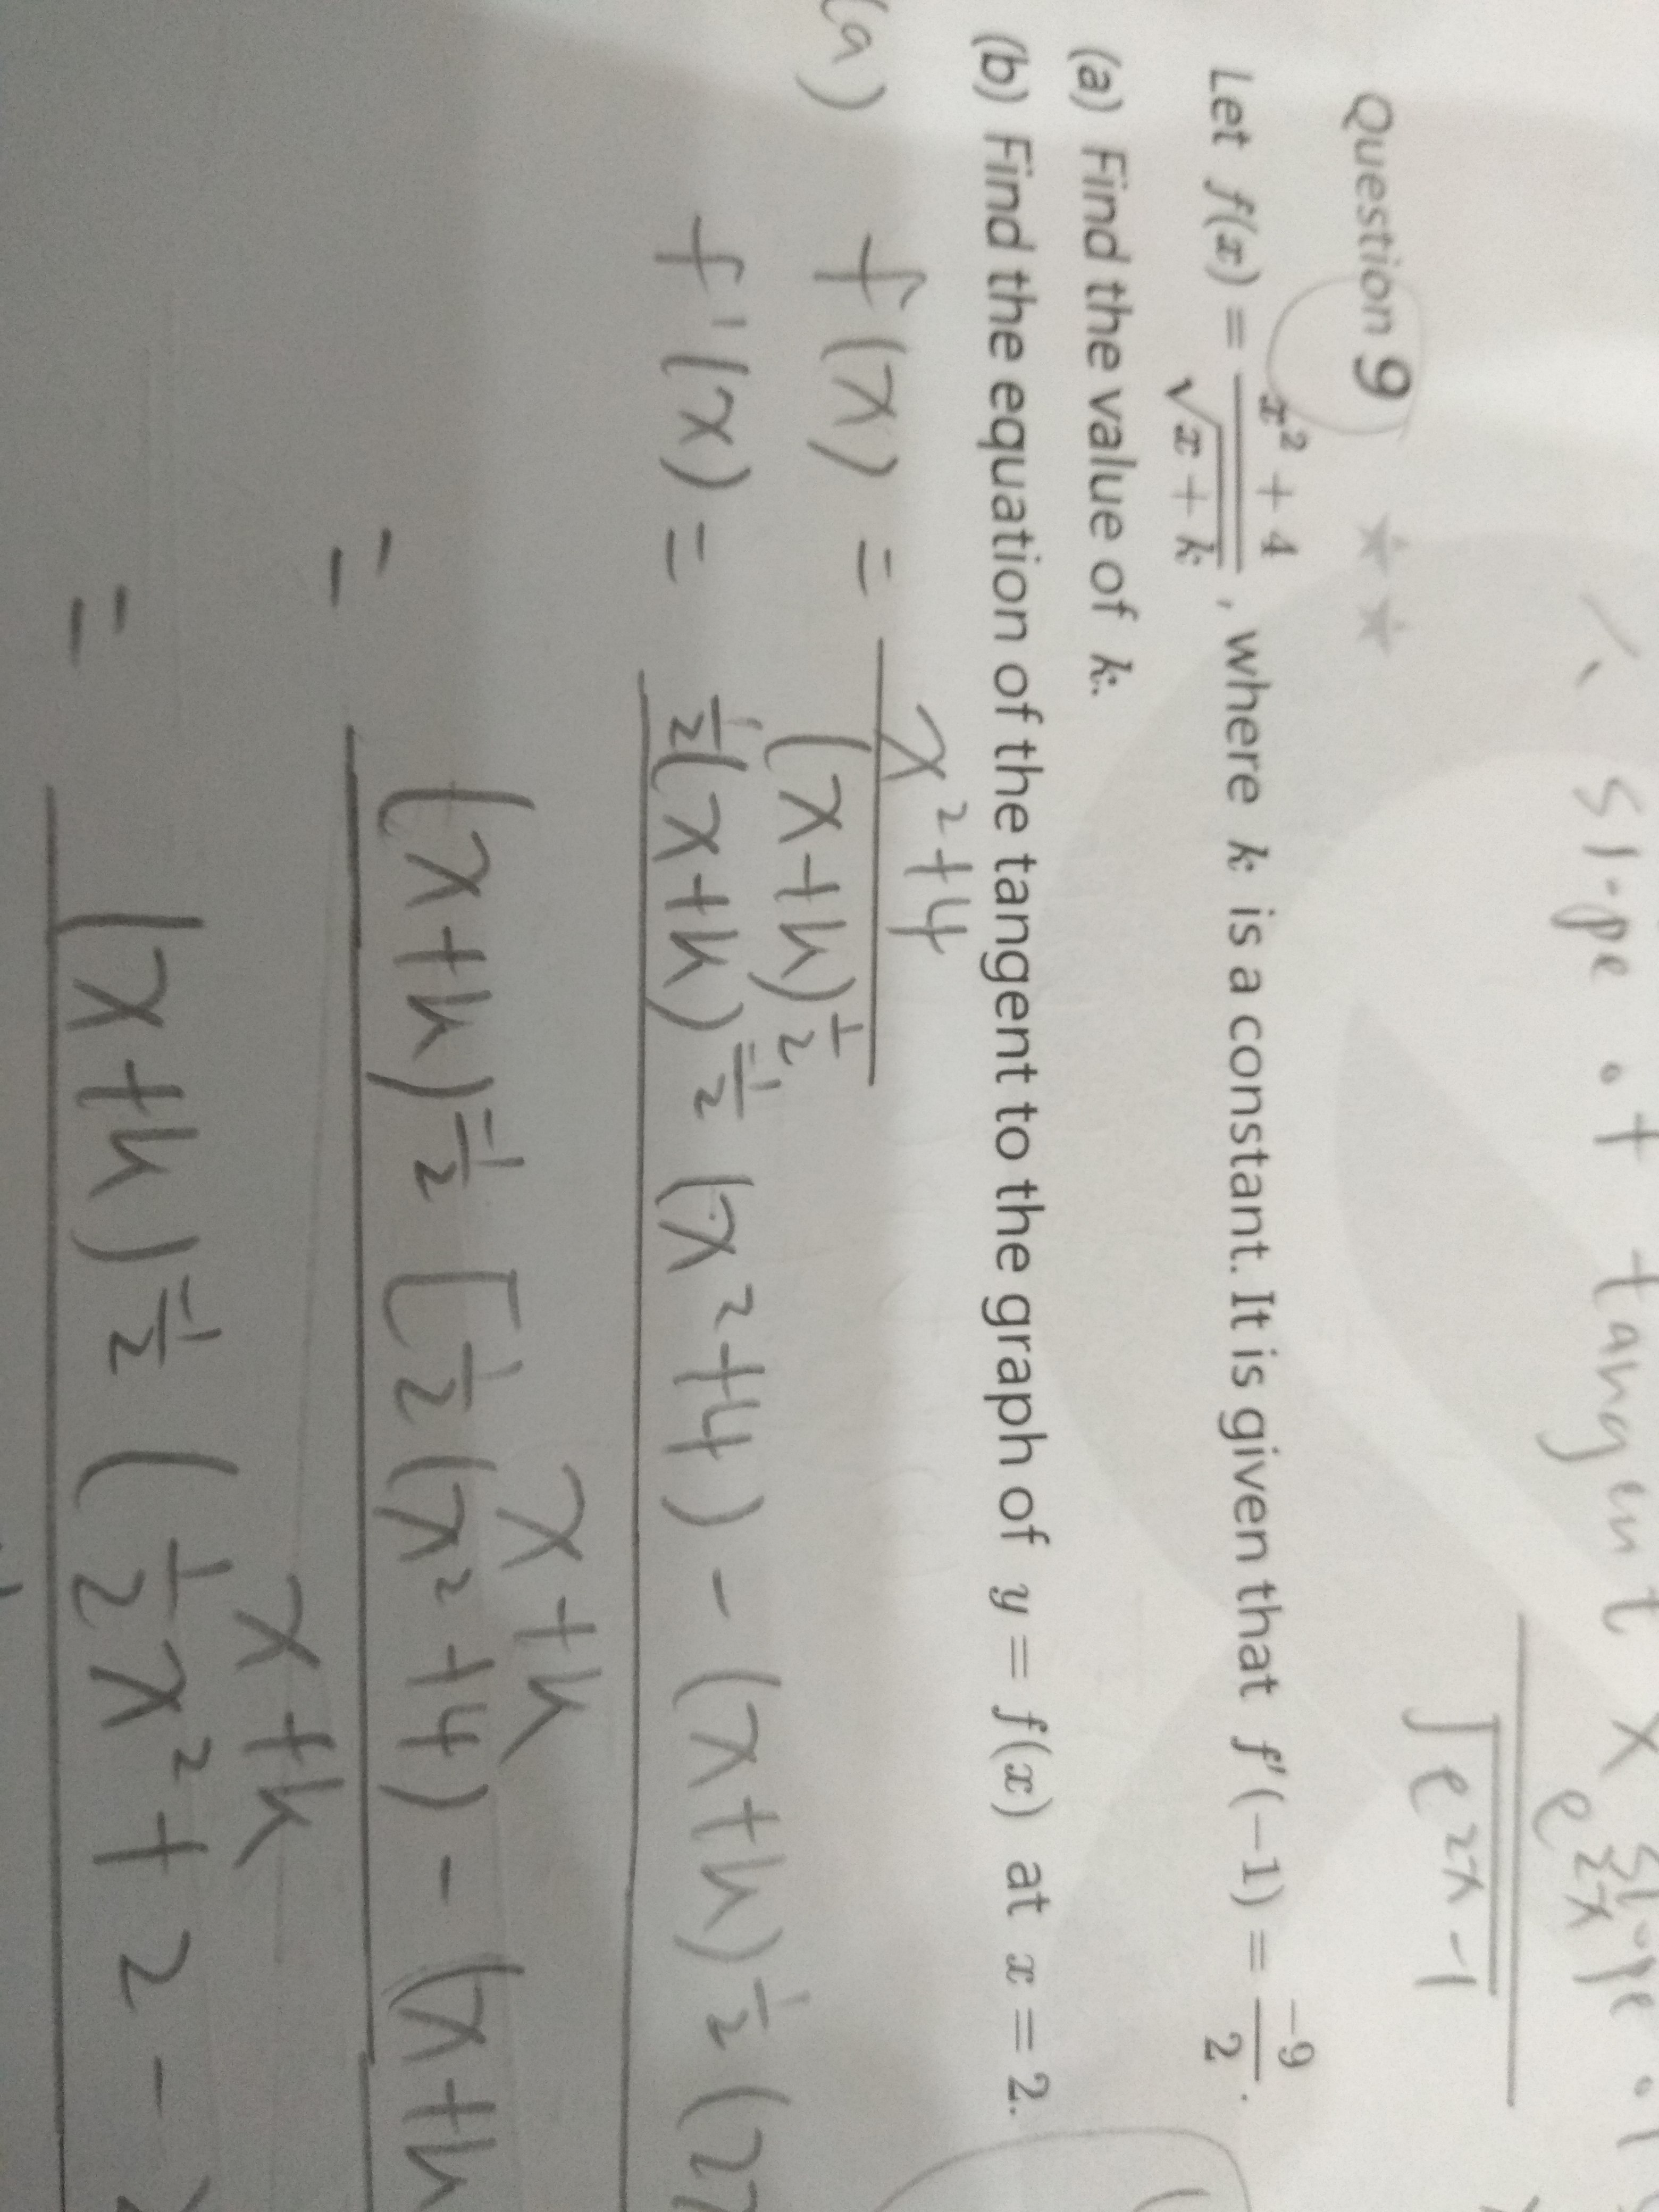 1、slope of tangent x slope o
e^{2x}
√(e^{2x} - 1)
Question 9 ★★
Let f(x) = (x² + 4)/√(x + k), where k is a constant. It is given that f'(−1) = −9/2.
(a) Find the value of k.
(b) Find the equation of the tangent to the graph of y = f(x) at x = 2.
(a) f(x) = (x²+4)/(x+k)^{1/2}
f'(x) = ½(x+k)^{-1/2} (x²+4) - (x+k)^{1/2} (2x
x+k
= (x+k)^{-1/2} [½(x²+4) - (x+k
x+k
= (x+k)^{-1/2} (½x²+2-